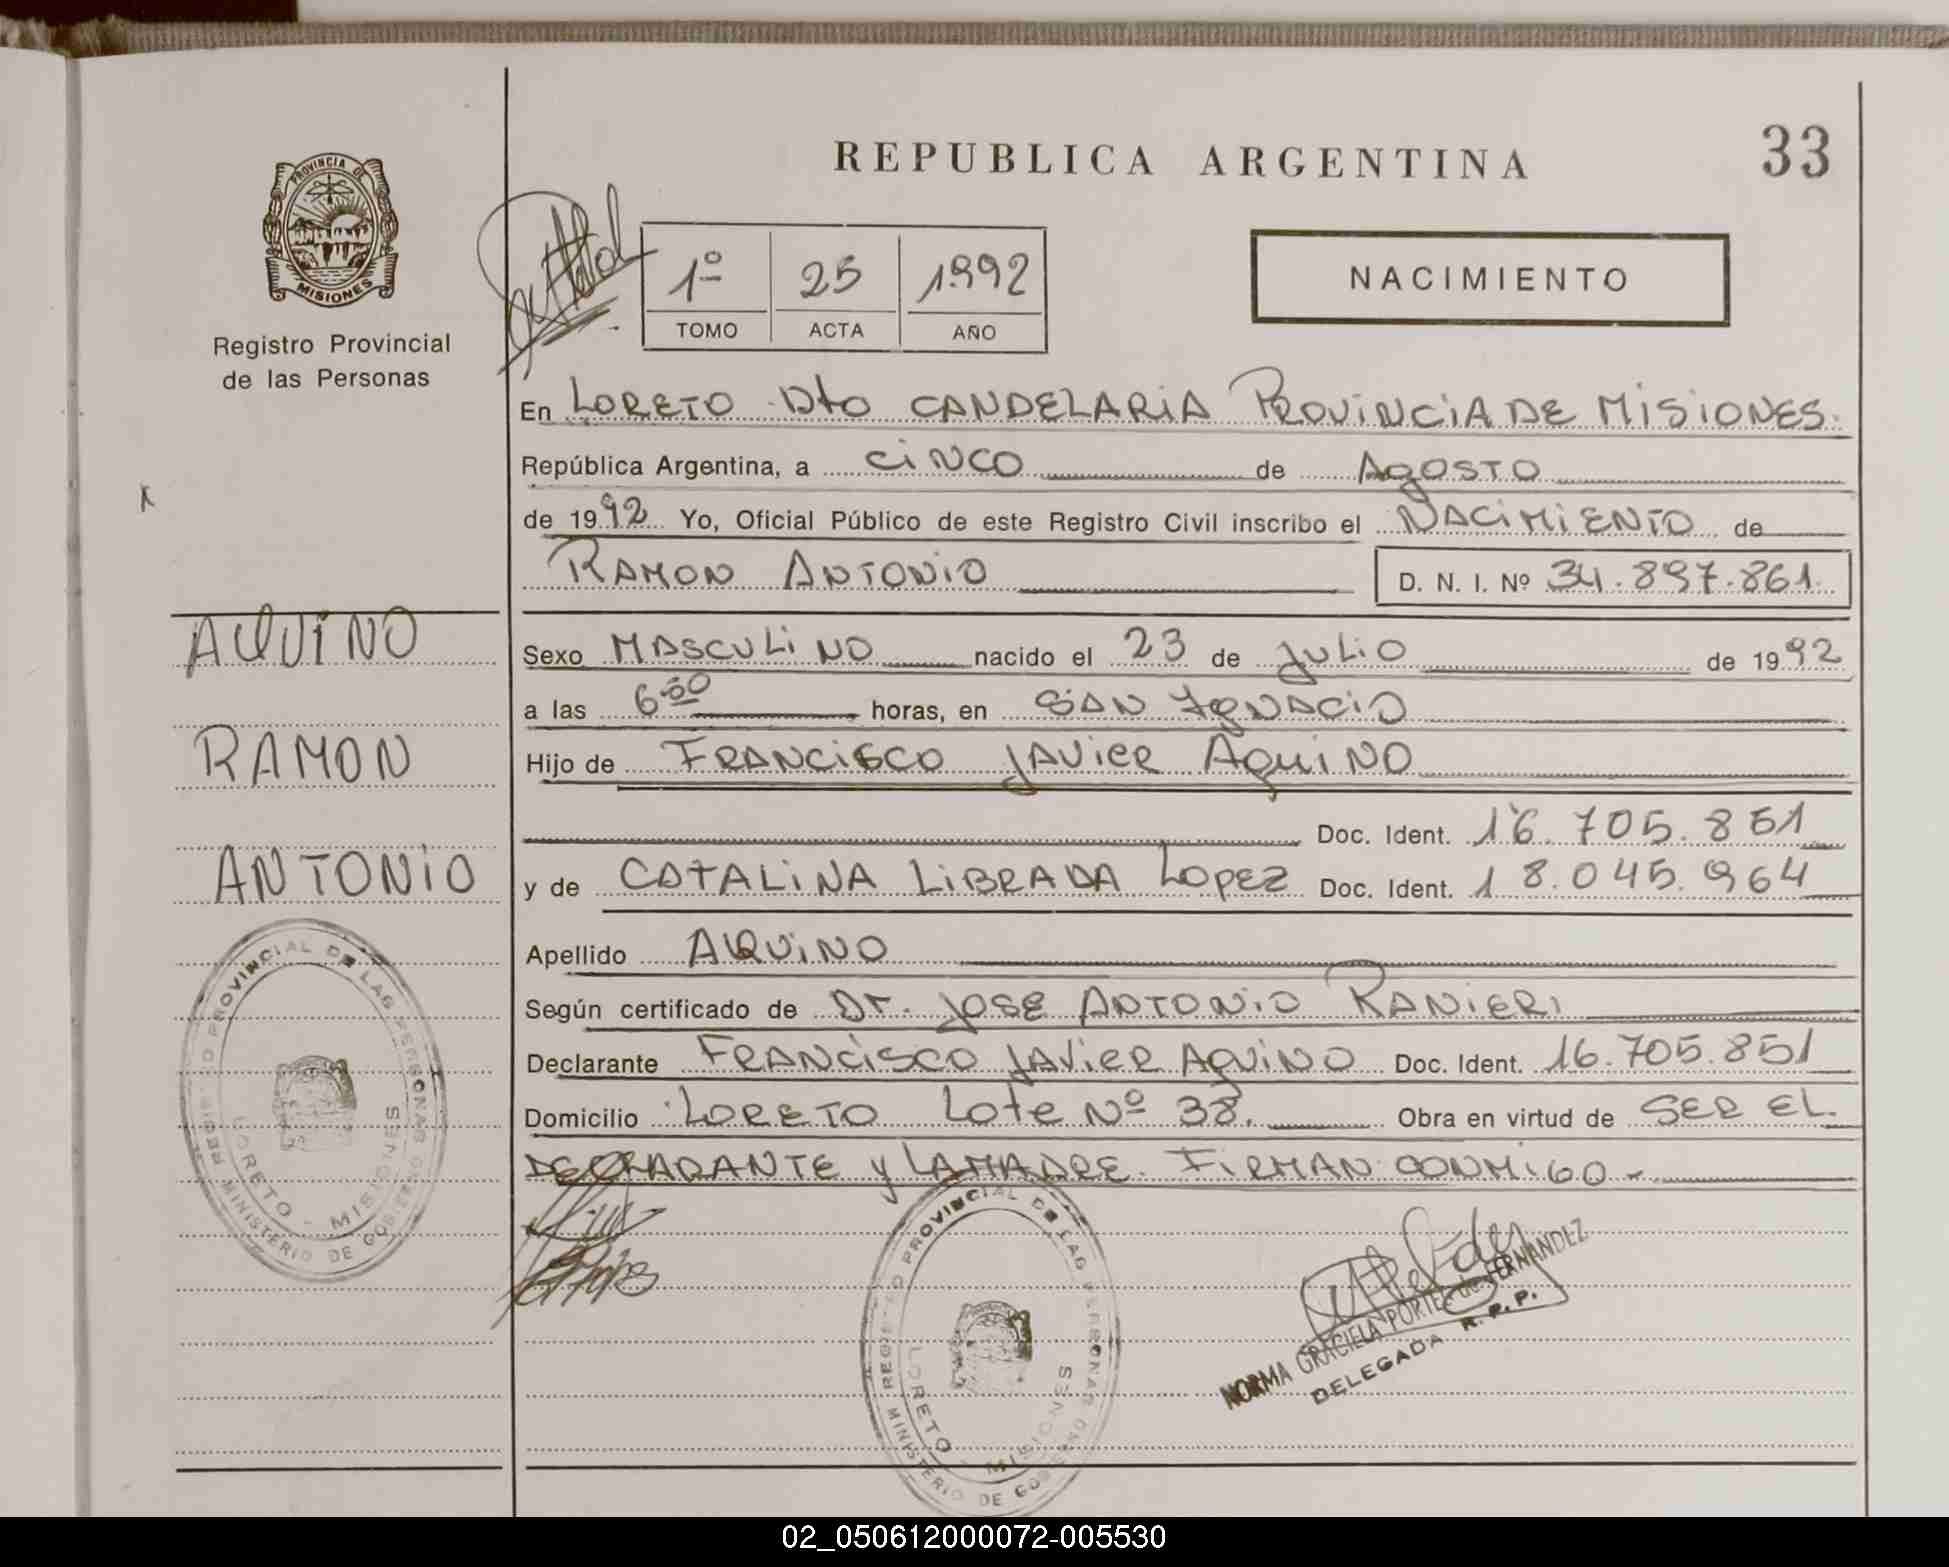 REPUBLICA ARGENTINA
33
PROVINCIA DE
MISIONES
Registro Provincial
de las Personas
1º 25 1992
TOMO ACTA AÑO
NACIMIENTO
En LORETO Dto CANDELARIA PROVINCIA DE MISIONES.
República Argentina, a CINCO de AGOSTO
de 1992 Yo, Oficial Público de este Registro Civil inscribo el NACIMIENTO de
RAMON ANTONIO D. N. I. Nº 34.897.861.
AQUINO
RAMON
ANTONIO
Sexo MASCULINO nacido el 23 de JULIO de 1992
a las 6 horas, en SAN IGNACIO
Hijo de FRANCISCO JAVIER AQUINO
Doc. Ident. 16.705.851
y de CATALINA LIBRADA LOPEZ Doc. Ident. 18.045.964
Apellido AQUINO
Según certificado de Dr. JOSE ANTONIO RANIERI
Declarante FRANCISCO JAVIER AQUINO Doc. Ident. 16.705.851
Domicilio LORETO Lote Nº 38. Obra en virtud de SER EL
DECLARANTE y LA MADRE. FIRMAN CONMIGO -
REGISTRO PROVINCIAL DE LAS PERSONAS
LORETO - MISIONES
MINISTERIO DE GOBIERNO
REGISTRO PROVINCIAL DE LAS PERSONAS
LORETO - MISIONES
MINISTERIO DE GOBIERNO
NORMA GRACIELA PORTEL de FERNANDEZ
DELEGADA R. P. P.
02_050612000072-005530